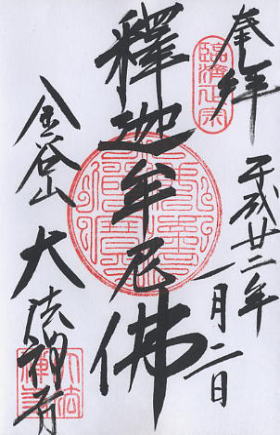 奉拝
臨済正宗
平成廿二年
一月二日
釋迦牟尼佛
金谷山
大法禅寺